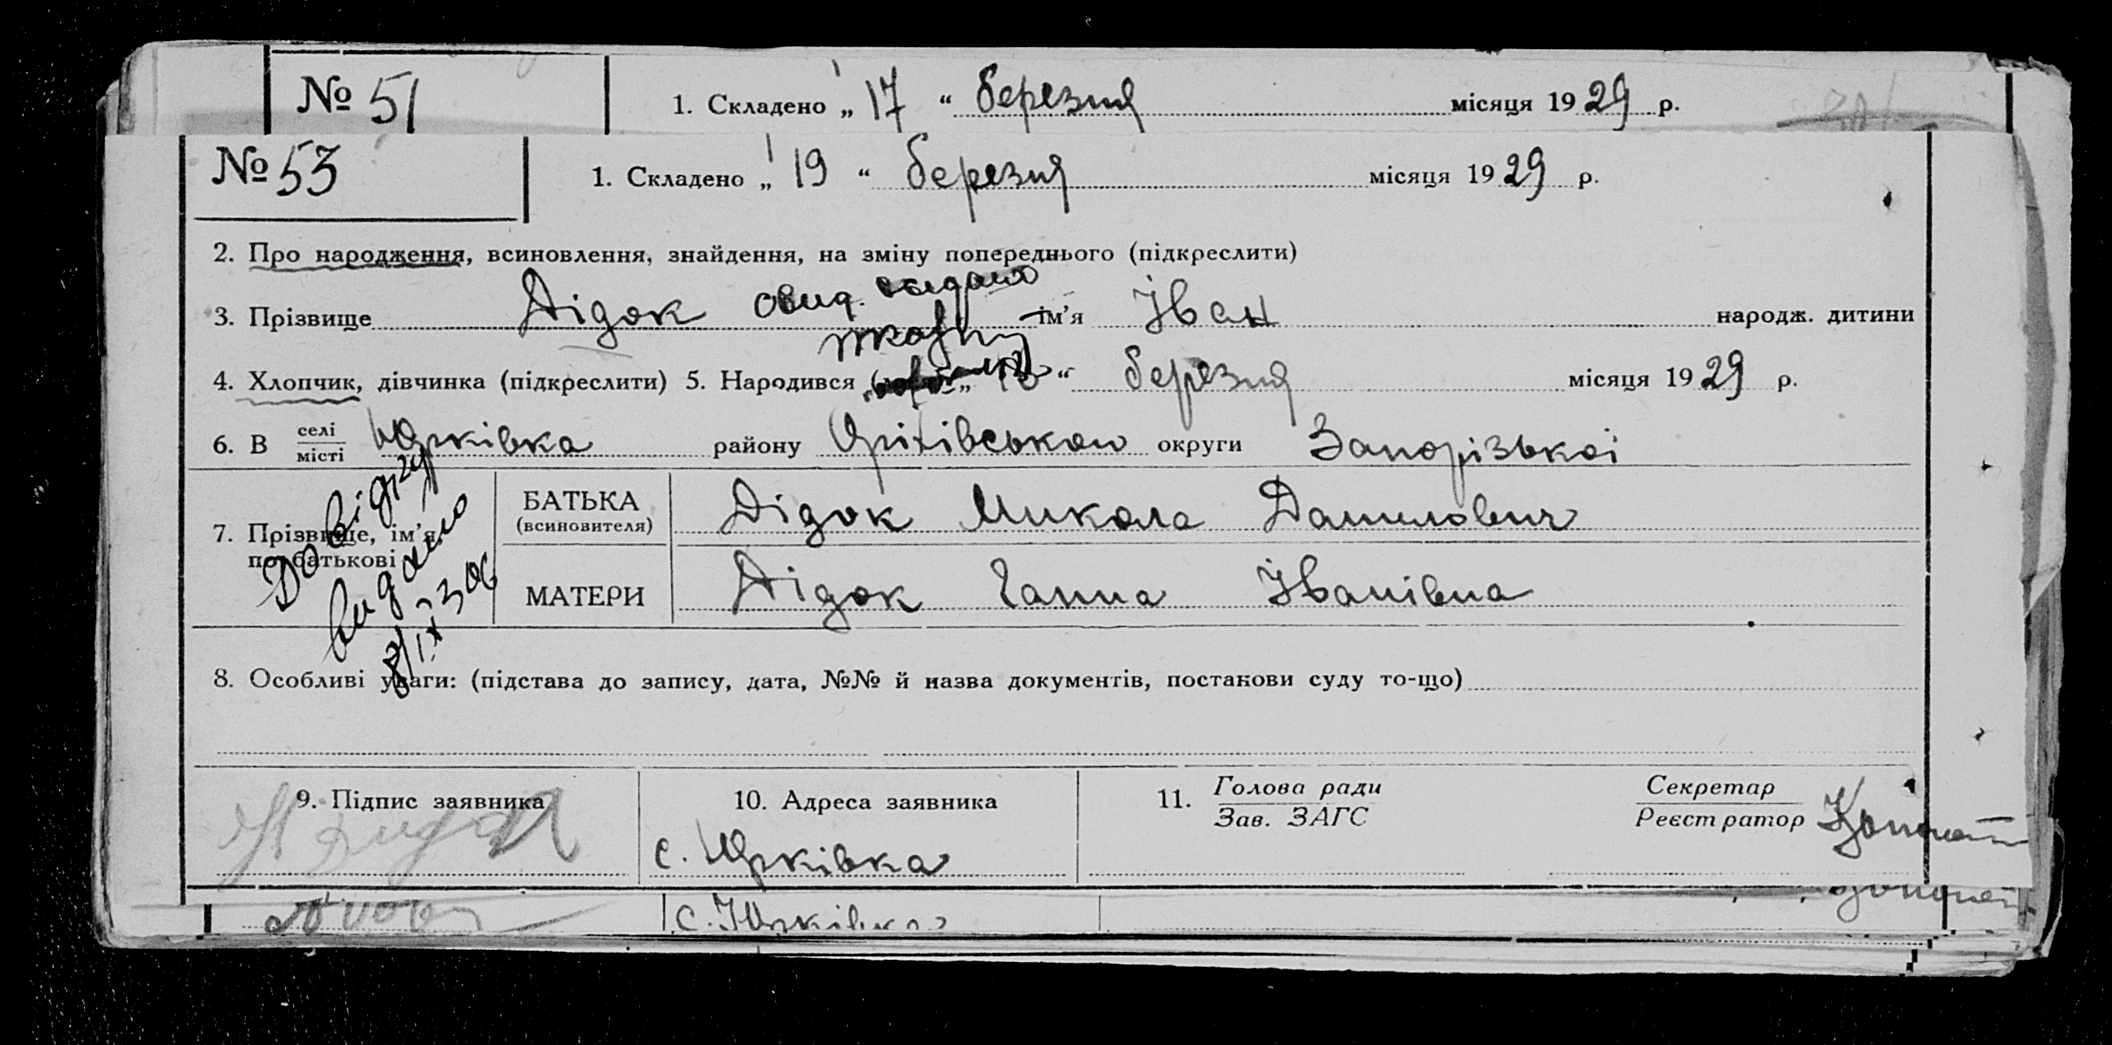 № 51 1. Складено „ 17 “ березня місяця 1929 р.
№ 53 1. Складено „ 19 “ березня місяця 1929 р.
2. Про народження, всиновлення, знайдення, на зміну попереднього (підкреслити)
3. Прізвище Дідок ім’я Іван народж. дитини
4. Хлопчик, дівчинка (підкреслити) 5. Народився „ “ березня місяця 1929 р.
6. В селі місті Юрківка району Оріхівського округи Запорізької
7. Прізвище, ім’я, по батькові
БАТЬКА (всиновителя) Дідок Микола Данилович
МАТЕРИ Дідок Ганна Іванівна
Довідку
видано
8. Особливі уваги: (підстава до запису, дата, №№ й назва документів, постанови суду то-що)
9. Підпис заявника 10. Адреса заявника 11. Голова ради Зав. ЗАГС Секретар Реєстратор
с. Юрківка
с. Юрківка